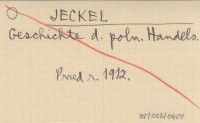 JECKEL
Geschichte d. poln. Handels.
Przed r. 1912.